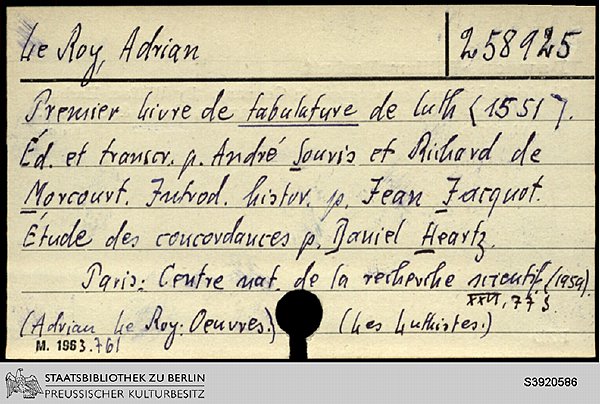 Le Roy, Adrian 258925
Premier livre de tabulature de luth (1551).
Éd. et transcr. p. André Souris et Richard de
Morcourt. Introd. histor. p. Jean Jacquot.
Étude des concordances p. Daniel Heartz.
Paris: Centre nat. de la recherche scientif. (1959).
XXVI, 77 S.
(Adrian Le Roy: Oeuvres.) (Les Luthistes.)
M. 1963.761
STAATSBIBLIOTHEK ZU BERLIN
PREUSSISCHER KULTURBESITZ
S3920586